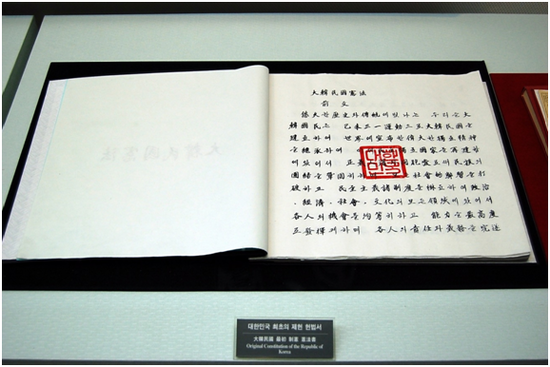 大韓民國憲法
前文
悠久한 歷史와 傳統에 빛나는 우리들 大
韓國民은 己未三一運動으로 大韓民國을
建立하여 世界에 宣布한 偉大한 獨立精神
을 繼承하여 獨立國家를 再建함
에 있어서 正義 同胞愛로써 民族의
團結을 鞏固히 하며 社會的 弊習을 打
破하고 民主主義諸制度를 樹立하여 政治
, 經濟, 社會, 文化의 모든 領域에 있어서
各人의 機會를 均等히 하고 能力을 最高度
로 發揮케 하며 各人의 責任과 義務를 完遂
대한민국
대한민국 최초의 제헌 헌법서
大韓民國 最初 制憲 憲法書
Original Constitution of the Republic of
Korea